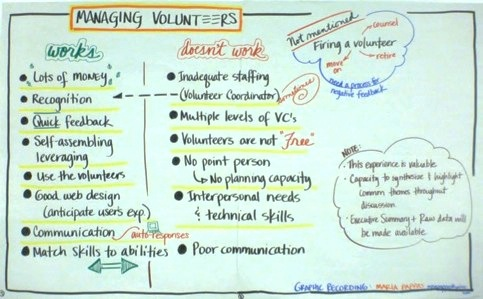 MANAGING VOLUNTEERS
works
Lots of money
Recognition
Quick feedback
Self-assembling
leveraging
Use the volunteers
Good web design
(anticipate users exp)
Communication
auto-responses
Match Skills to abilities
doesn't work
Inadequate staffing
(Volunteer Coordinator)
sometimes
Multiple levels of VC's
Volunteers are not "Free"
No point person
No planning capacity
Interpersonal needs
& technical skills
Poor communication
Not mentioned
counsel
Firing a volunteer
move
on
retire
need a process for
negative feedback
NOTE:
· This experience is valuable
· Capacity to synthesize & highlight
common themes throughout
discussion
· Executive Summary + Raw data will
be made available.
GRAPHIC RECORDING: MARIA PAPPAS